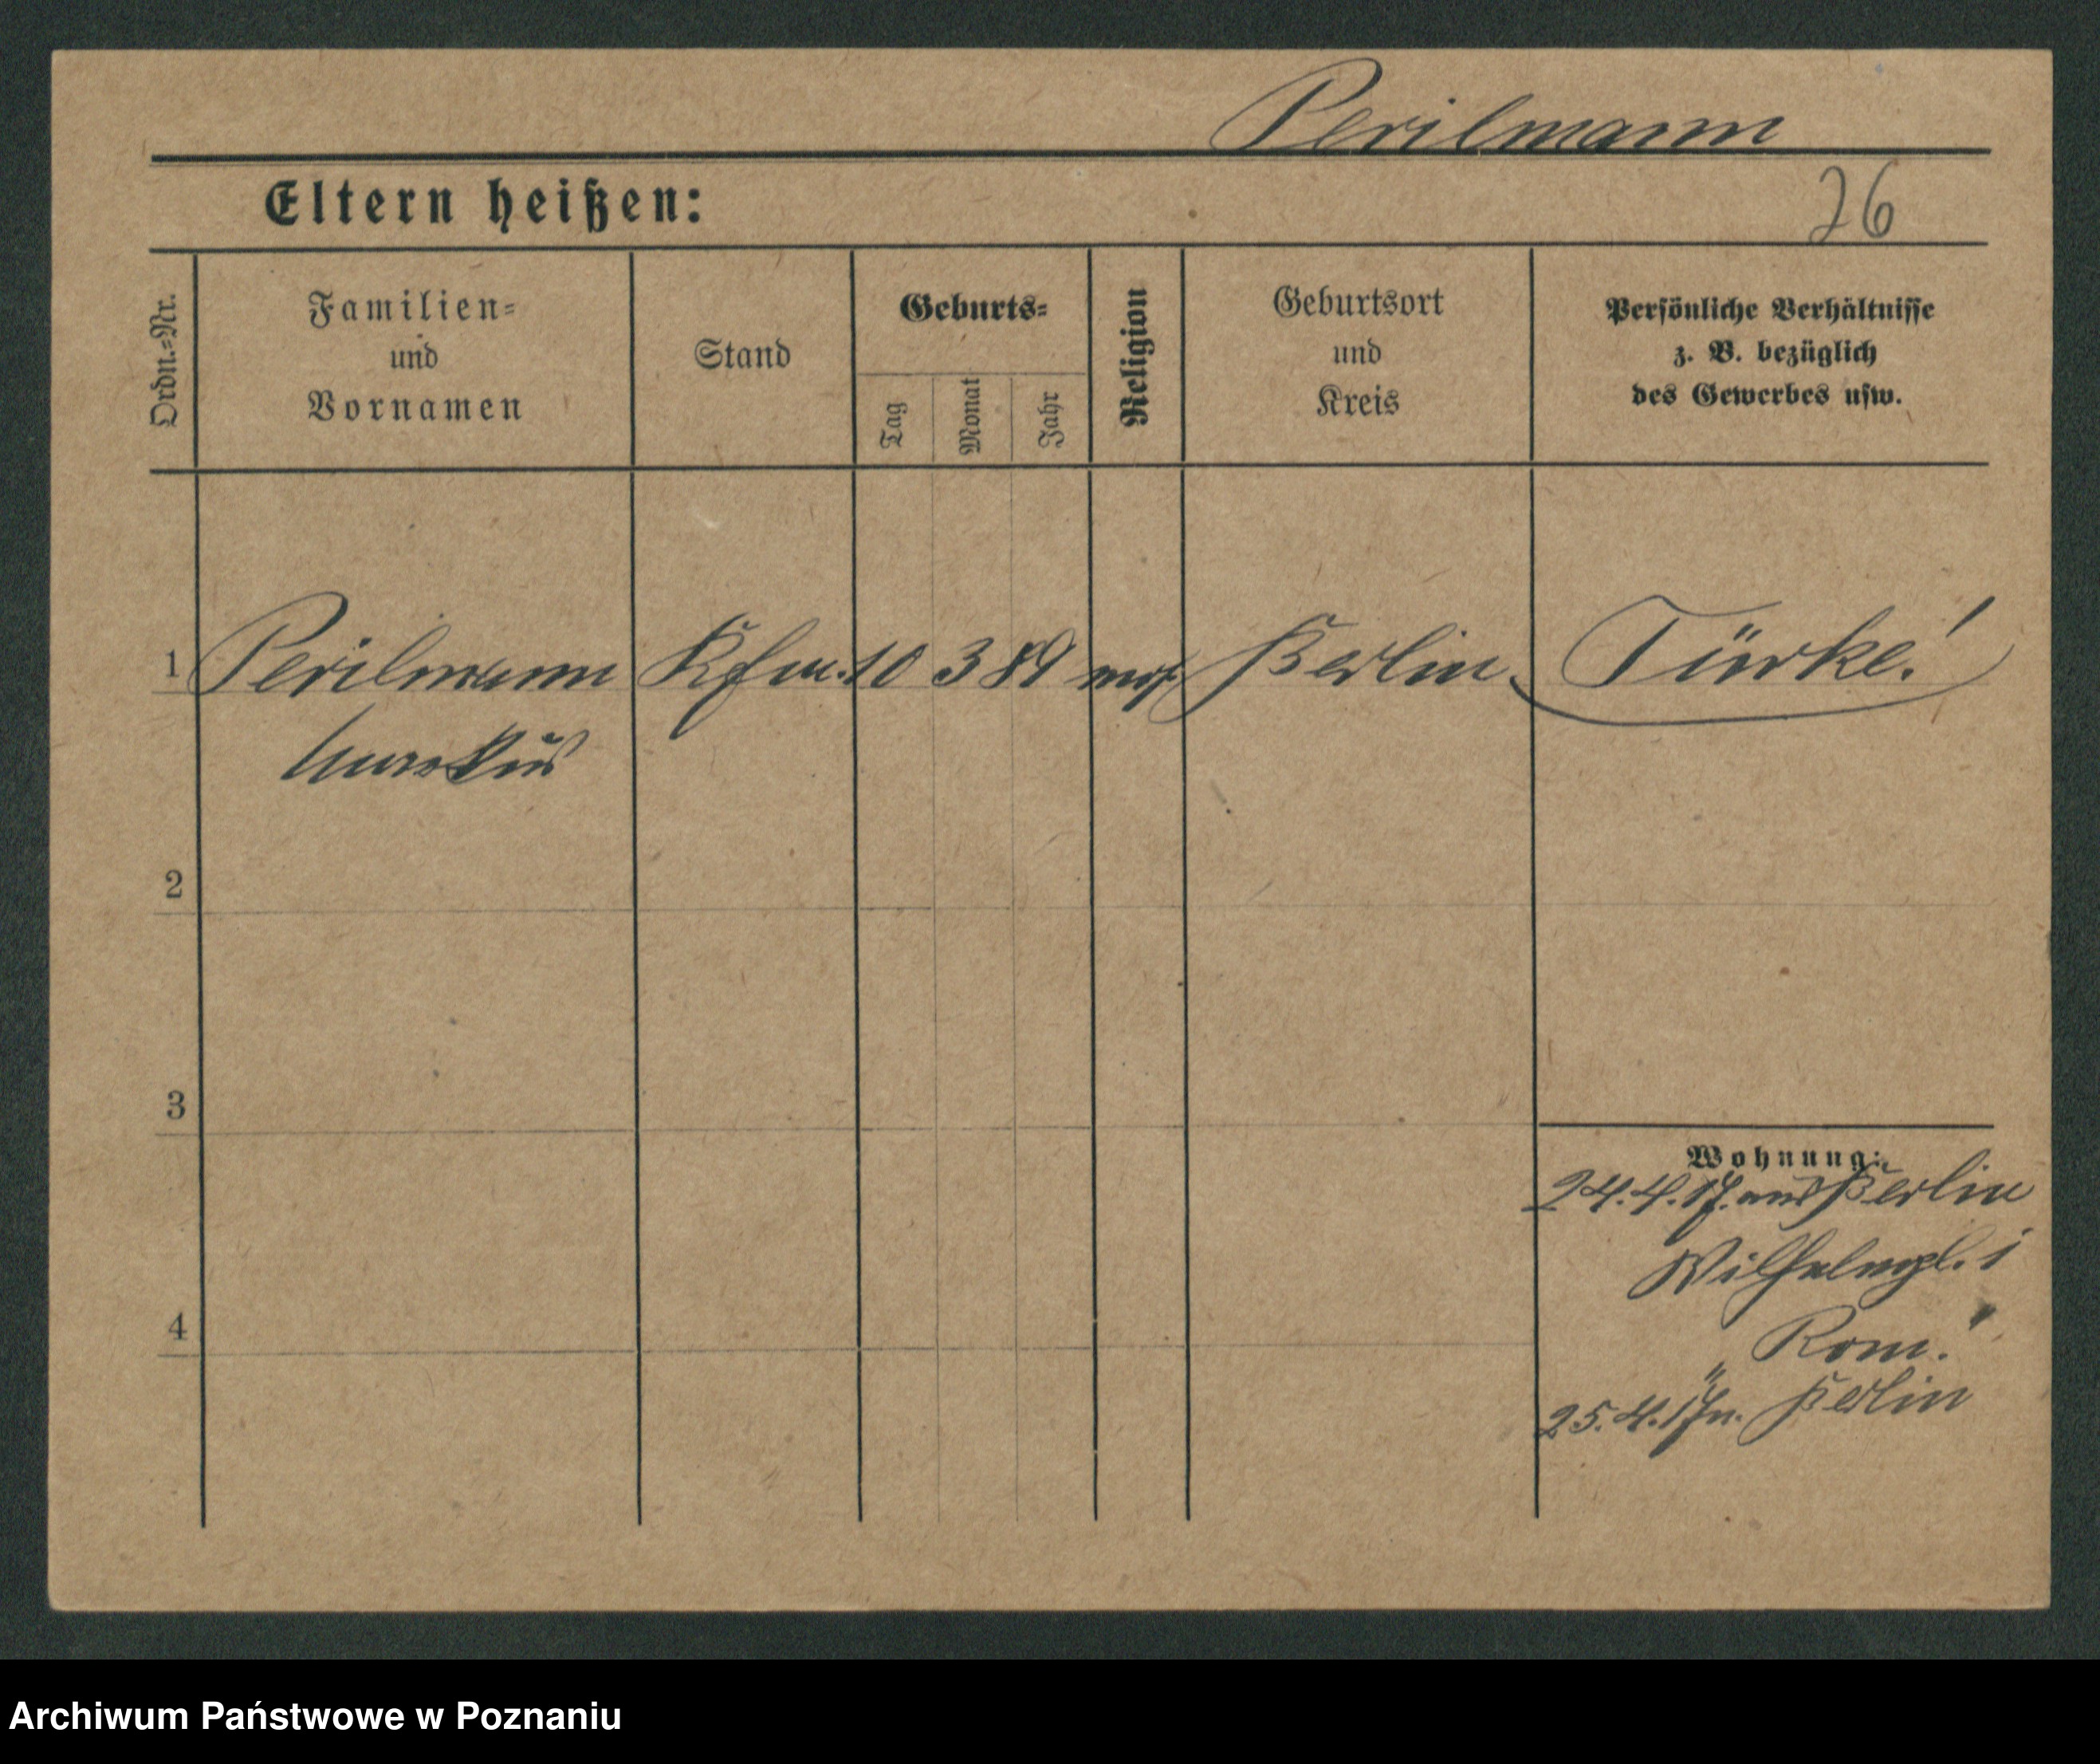 Perilmann
Eltern heißen:
26
Ordn.=Nr.
Familien=
und
Vornamen
Stand
Geburts=
Tag
Monat
Jahr
Religion
Geburtsort
und
Kreis
Persönliche Verhältnisse
z. B. bezüglich
des Gewerbes usw.
1 Perilmann Kfm. 10 3 89 mos. Berlin Türke!
Markus
2
3
4
Wohnung:
24.4.17. aus Berlin
Wilhelmpl. 1
Rom.
25.4.17 n. Berlin
Archiwum Państwowe w Poznaniu